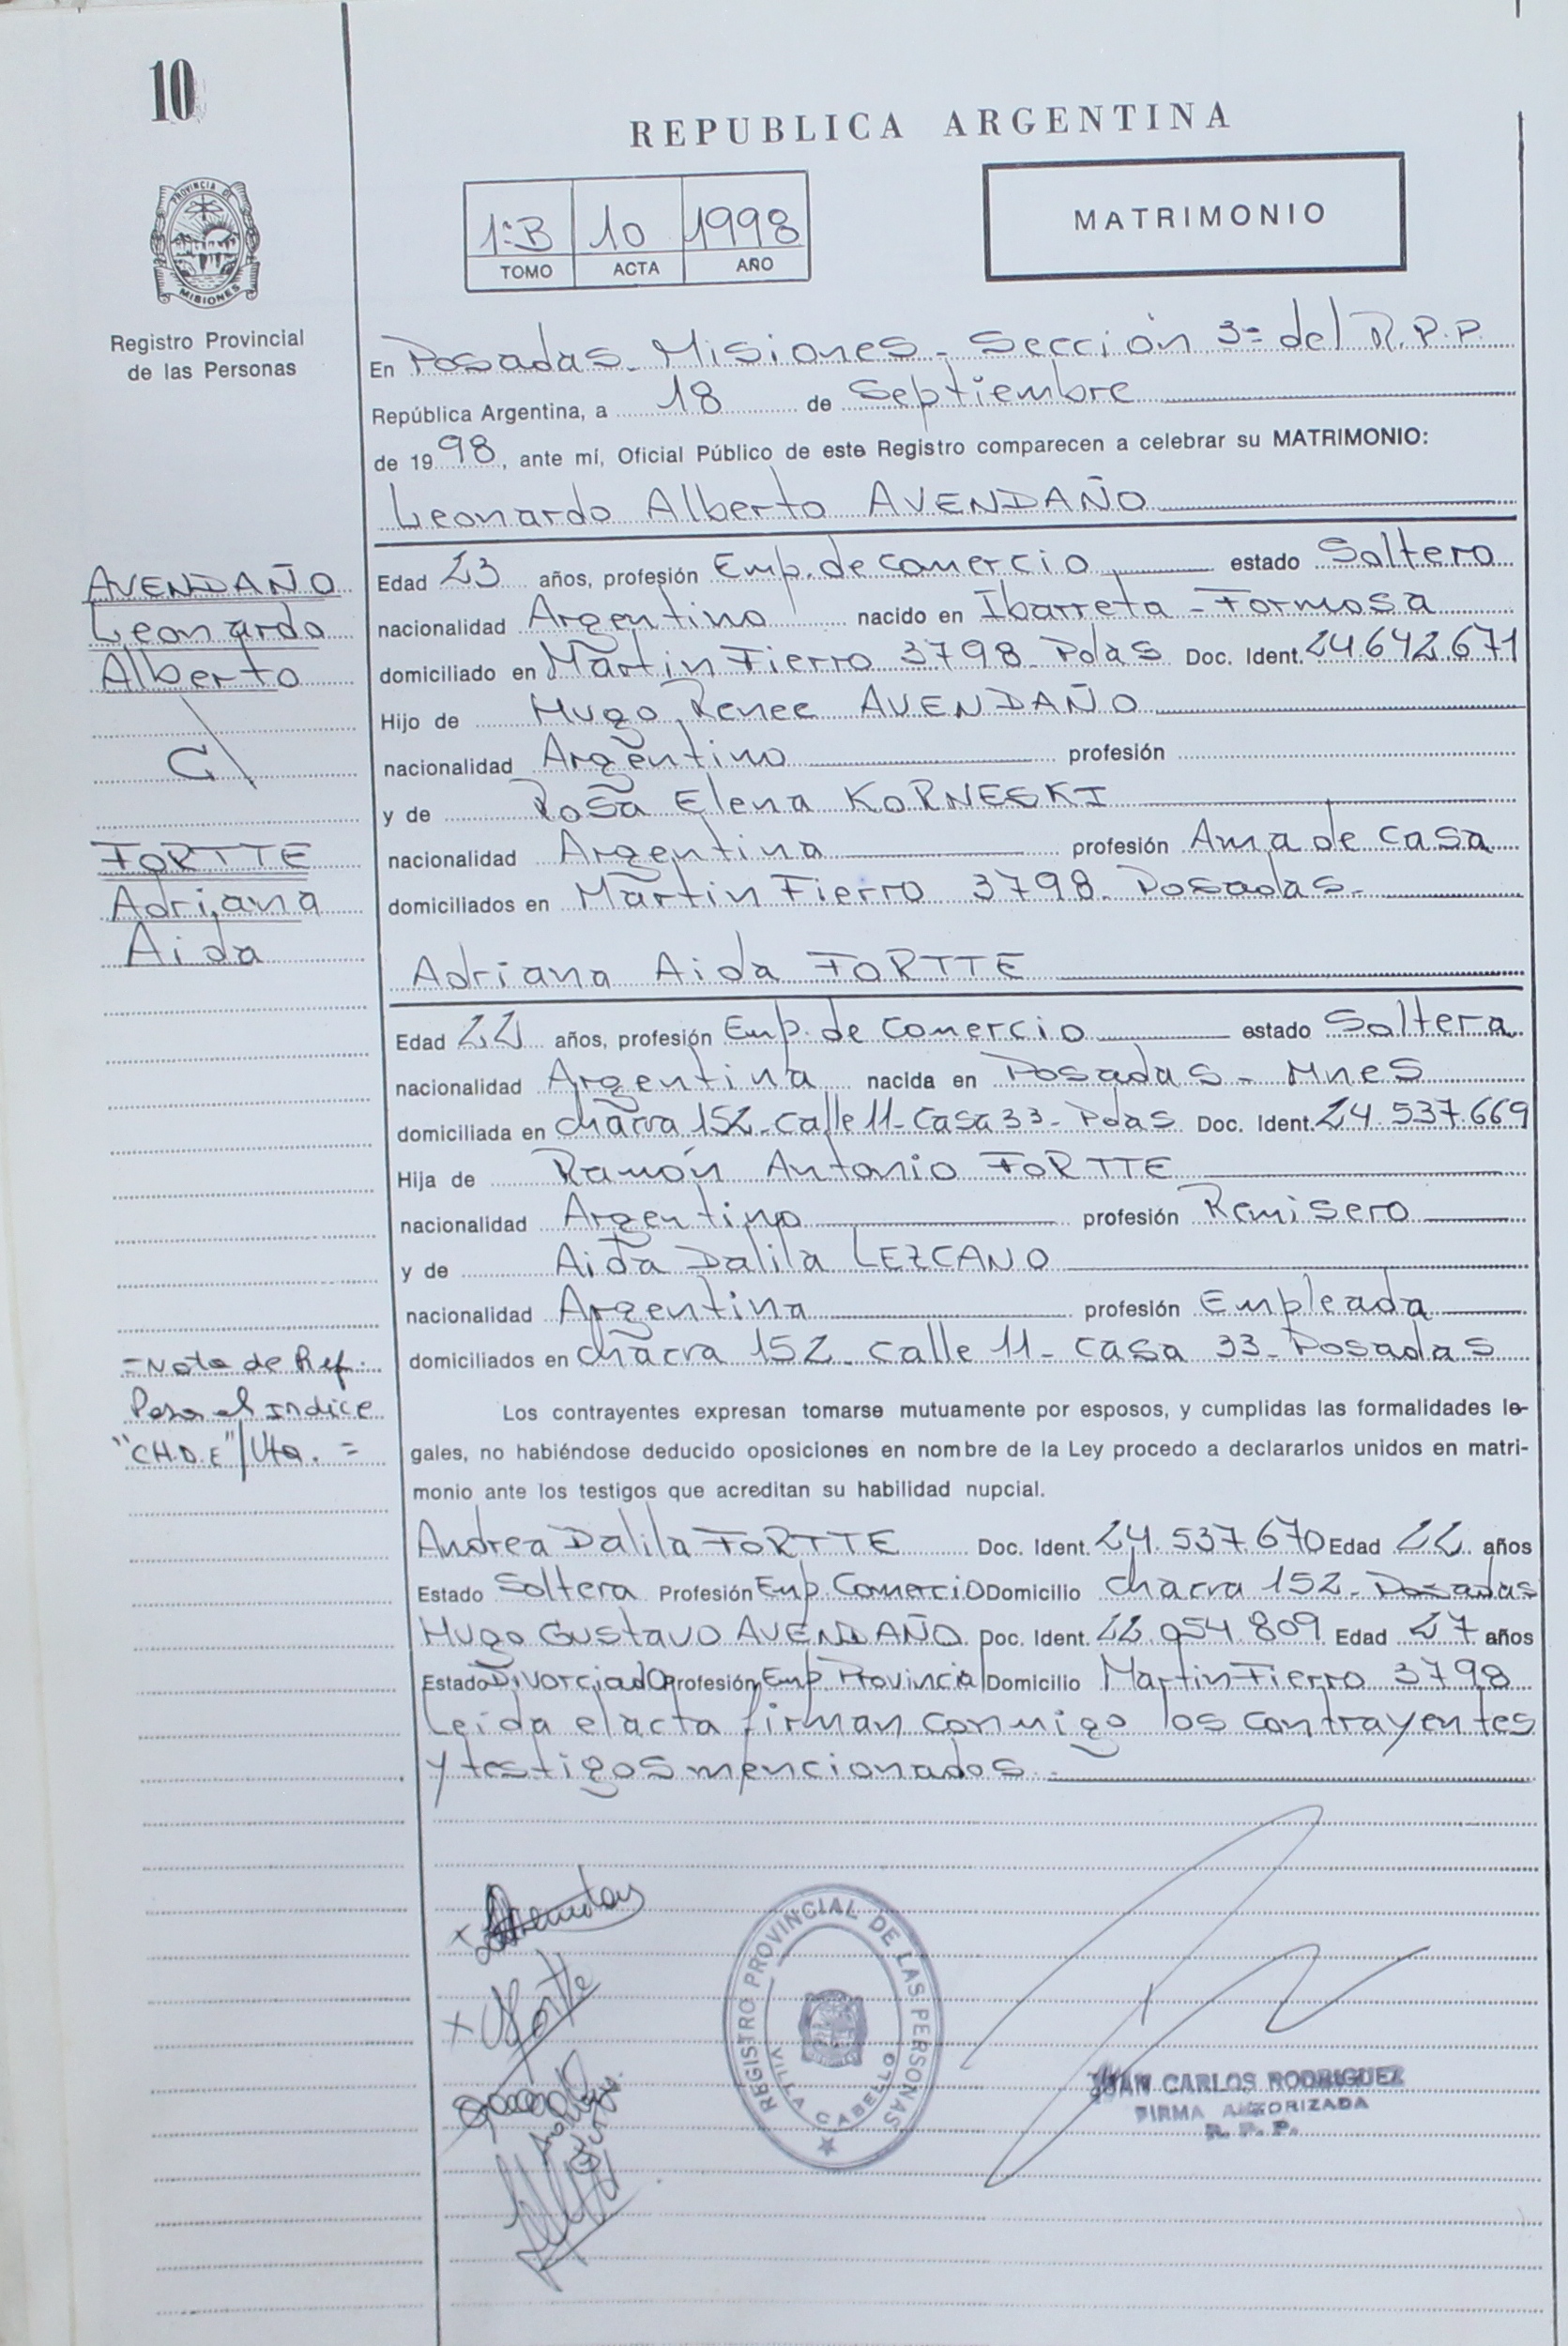 10
REPUBLICA ARGENTINA
PROVINCIA DE
MISIONES
Registro Provincial
de las Personas
1ºB 10 1998
TOMO ACTA AÑO
MATRIMONIO
En Posadas - Misiones - Sección 3ª del R.P.P.
República Argentina, a 18 de Septiembre
de 1998, ante mí, Oficial Público de este Registro comparecen a celebrar su MATRIMONIO:
Leonardo Alberto AVENDAÑO
AVENDAÑO
Leonardo
Alberto
C/
FORTTE
Adriana
Aida
Edad 23 años, profesión Emp. de comercio estado Soltero
nacionalidad Argentino nacido en Ibarreta - Formosa
domiciliado en Martin Fierro 3798 - Pdas Doc. Ident. 24.642.671
Hijo de Hugo Renee AVENDAÑO
nacionalidad Argentino profesión
y de Rosa Elena KORNESKI
nacionalidad Argentina profesión Ama de casa
domiciliados en Martin Fierro 3798 - Posadas -
Adriana Aida FORTTE
Edad 22 años, profesión Emp. de comercio estado Soltera
nacionalidad Argentina nacida en Posadas - Mnes
domiciliada en chacra 152 - calle 11 - casa 33 - Pdas Doc. Ident. 24.537.669
Hija de Ramón Antonio FORTTE
nacionalidad Argentino profesión Remisero
y de Aida Dalila LEZCANO
nacionalidad Argentina profesión Empleada
domiciliados en chacra 152 - calle 11 - casa 33 - Posadas
= Nota de Ref.
Pasa al Indice
"CH.D.E"/Uta. =
Los contrayentes expresan tomarse mutuamente por esposos, y cumplidas las formalidades le-
gales, no habiéndose deducido oposiciones en nombre de la Ley procedo a declararlos unidos en matri-
monio ante los testigos que acreditan su habilidad nupcial.
Andrea Dalila FORTTE Doc. Ident. 24.537.670 Edad 22 años
Estado Soltera Profesión Emp. Comercio Domicilio chacra 152 - Posadas
Hugo Gustavo AVENDAÑO Doc. Ident. 22.054.809 Edad 27 años
Estado Divorciado Profesión Emp Provincial Domicilio Martin Fierro 3798
Leida el acta firman conmigo los contrayentes
y testigos mencionados -
REGISTRO PROVINCIAL DE LAS PERSONAS
VILLA CABELLO
JUAN CARLOS RODRIGUEZ
FIRMA AUTORIZADA
R. P. P.